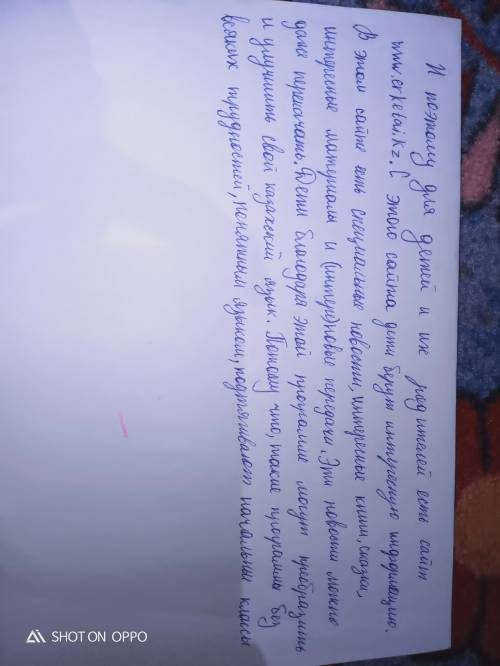 И поэтому для детей и их родителей есть сайт
www.erketai.kz. С этого сайта дети берут интересную информацию.
В этом сайте есть специальные новости, интересные книги, сказки,
интересные материалы и новые передачи. Эти новости можно
даже перекачать. Дети благодаря этой программе могут преобразить
и улучшить свой казахский язык. Потому что, такие программы без
всяких трудностей, понятным языком, подтягивают начальные классы
SHOT ON OPPO